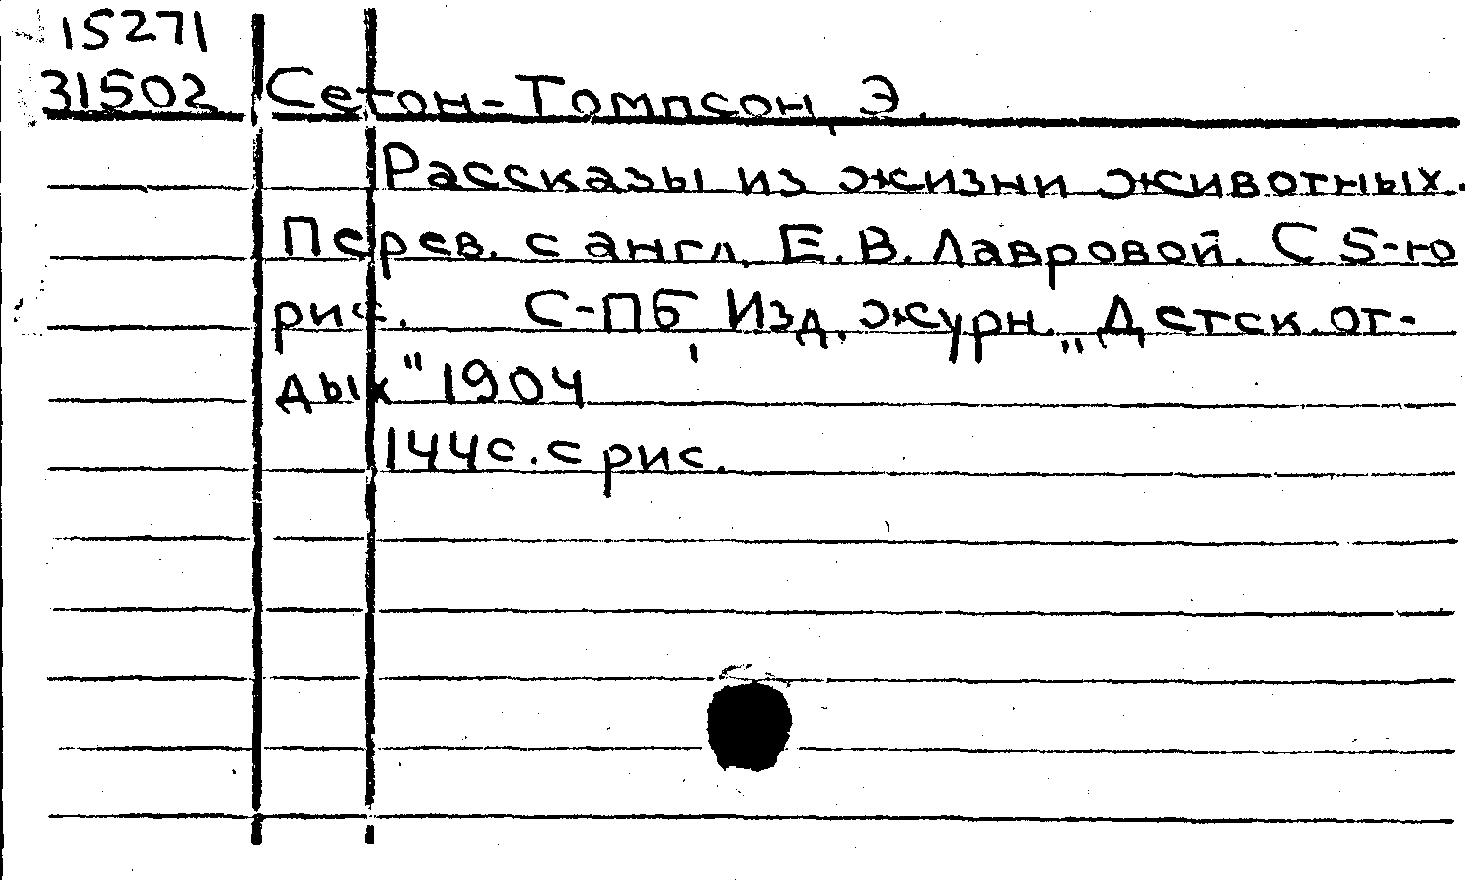 15271
31502 Сетон-Томпсон, Э.
Рассказы из жизни животных.
Перев. с англ. Е.В. Лавровой. С 5-ю
рис. С-ПБ, Изд. журн. „Детск. от-
дых" 1904
144с. с рис.